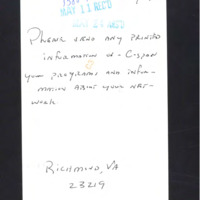 1985
MAY 11 REC'D
MAY 11 REC'D
PLEASE SEND ANY PRINTED
INFORMATION ON C-SPAN
YOUR PROGRAMS AND INFOR-
MATION ABOUT YOUR NET-
WORK.
RICHMOND, VA
23219